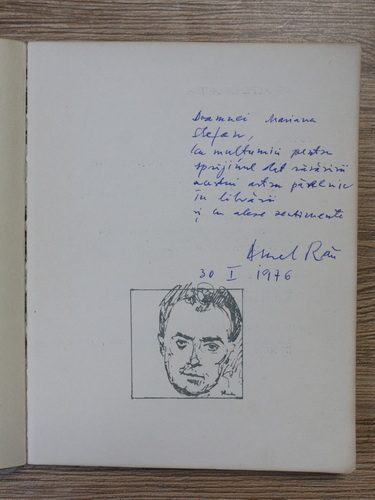 Doamnei Mariana
Stefan,
cu mulțumiri pentru
sprijinul dat răsăririi
acestui astru
în librării
și cu alese sentimente
Aurel Rău
30 I 1976